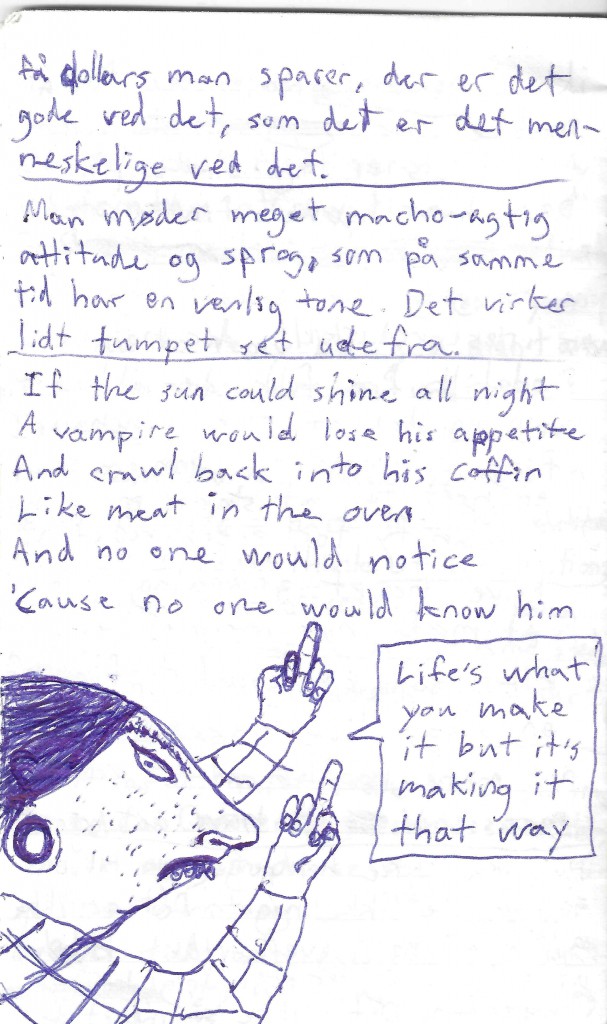 få dollars man sparer, der er det
gode ved det, som det er det men-
neskelige ved det.
Man møder meget macho-agtig
attitude og sprog, som på samme
tid har en venlig tone. Det virker
lidt tumpet set udefra.
If the sun could shine all night
A vampire would lose his appetite
And crawl back into his coffin
Like meat in the oven
And no one would notice
'Cause no one would know him
Life's what
you make
it but it's
making it
that way